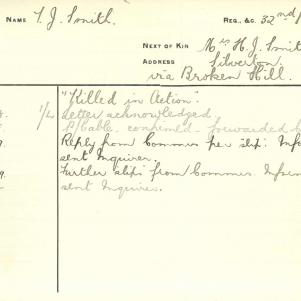 NAME T. J. Smith. REG. &C. 32nd
NEXT OF KIN Mrs H. J. Smith
ADDRESS Silverton,
via Broken Hill.
"Killed in Action".
1/2 Letter acknowledged
P/Cable. confirmed. forwarded
9 Reply from Commrs per slip.
sent Inquirer.
9. Further slip from Commrs.
sent Inquirer.